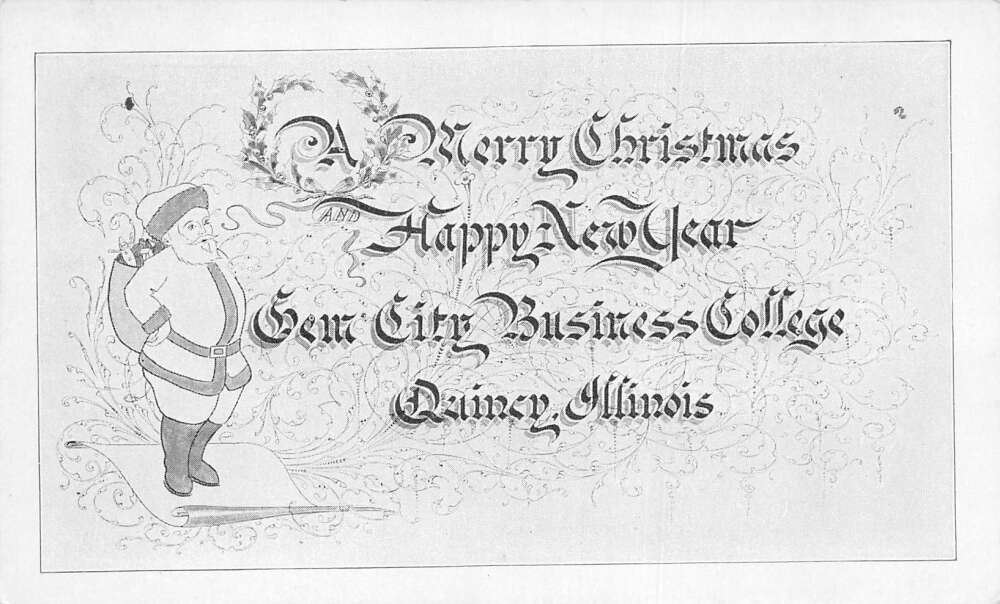 A Merry Christmas
AND
Happy New Year
Gem City Business College
Quincy, Illinois